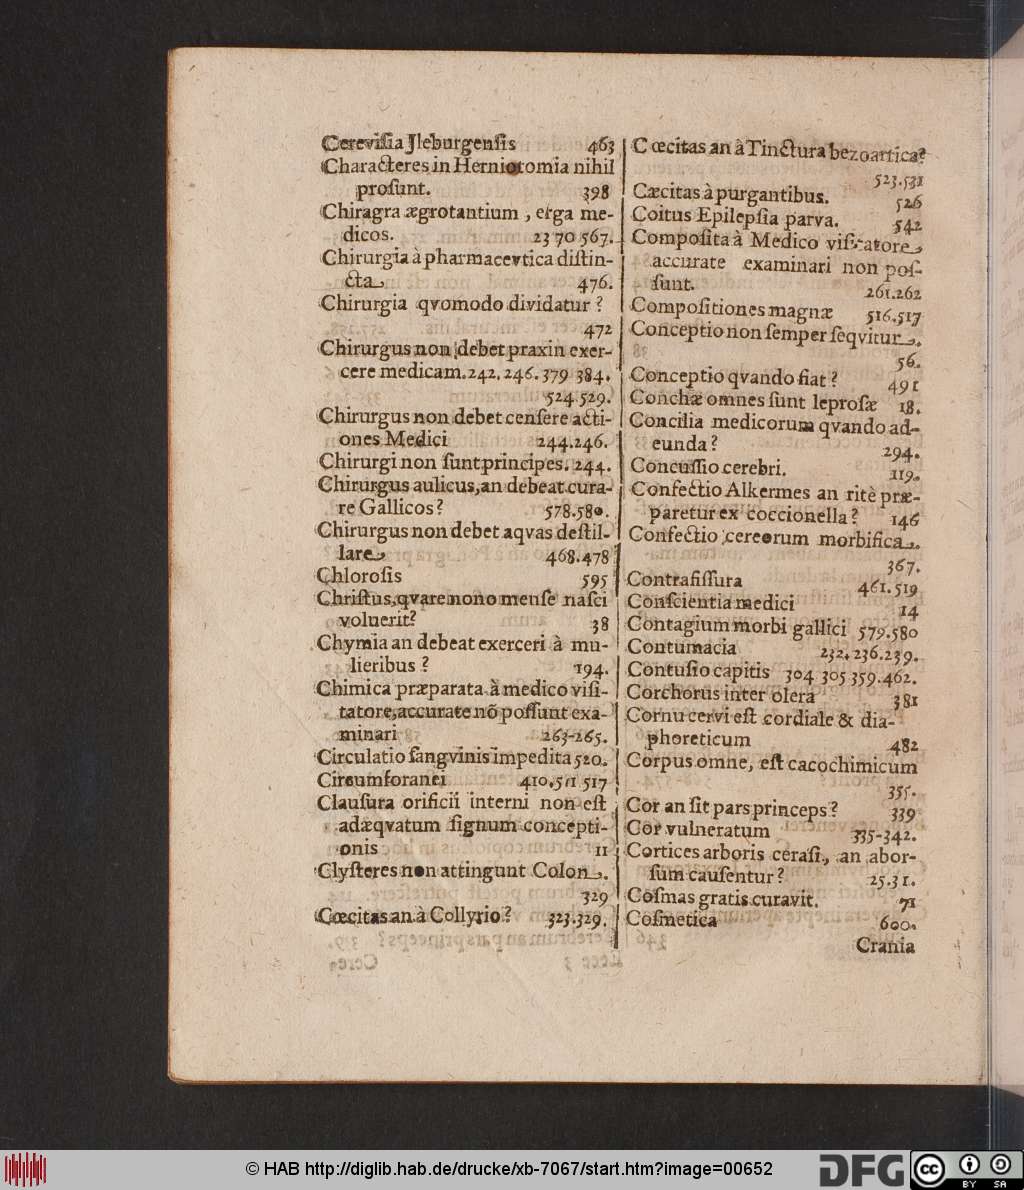 Cereviſia Jleburgenſis 463
Characteres in Herniotomia nihil
proſunt. 398
Chiragra ægrotantium, erga me-
dicos. 23 70 567.
Chirurgia à pharmacevtica diſtin-
cta. 476.
Chirurgia qvomodo dividatur?
472
Chirurgus non debet praxin exer-
cere medicam. 242. 246. 379 384.
524. 529.
Chirurgus non debet cenſere acti-
ones Medici 244. 246.
Chirurgi non ſunt principes. 244.
Chirurgus aulicus, an debeat cura-
re Gallicos? 578. 580.
Chirurgus non debet aqvas deſtil-
lare 468. 478
Chloroſis 595
Chriſtus, qvare nono menſe naſci
voluerit? 38
Chymia an debeat exerceri à mu-
lieribus? 194.
Chimica præparata à medico viſi-
tatore, accurate nõ poſſunt exa-
minari 263-265.
Circulatio ſangvinis impedita 520.
Circumforanei 410. 511 517
Clauſura orificii interni non eſt
adæqvatum ſignum concepti-
onis 11
Clyſteres non attingunt Colon.
329
Cœcitas an à Collyrio? 323. 329.
Cœcitas an à Tinctura bezoartica?
523. 531
Cæcitas à purgantibus. 526
Coitus Epilepſia parva. 542
Compoſita à Medico viſitatore
accurate examinari non poſ-
ſunt. 261. 262
Compoſitiones magnæ 516. 517
Conceptio non ſemper ſeqvitur.
56.
Conceptio qvando fiat? 491
Conchæ omnes ſunt leproſæ 18.
Concilia medicorum qvando ad-
eunda? 294.
Concuſſio cerebri. 119.
Confectio Alkermes an ritè præ-
paretur ex coccionella? 146
Confectio cereorum morbifica.
367.
Contrafiſſura 461. 519
Conſcientia medici 14
Contagium morbi gallici 579. 580
Contumacia 232. 236. 239.
Contuſio capitis 304 305 359. 462.
Corchorus inter olera 381
Cornu cervi eſt cordiale & dia-
phoreticum 482
Corpus omne, eſt cacochimicum
355.
Cor an ſit pars princeps? 339
Cor vulneratum 335-342.
Cortices arboris ceraſi, an abor-
ſum cauſentur? 25. 31.
Coſmas gratis curavit. 71
Coſmetica 600.
Crania
© HAB http://diglib.hab.de/drucke/xb-7067/start.htm?image=00652
DFG
cc BY SA